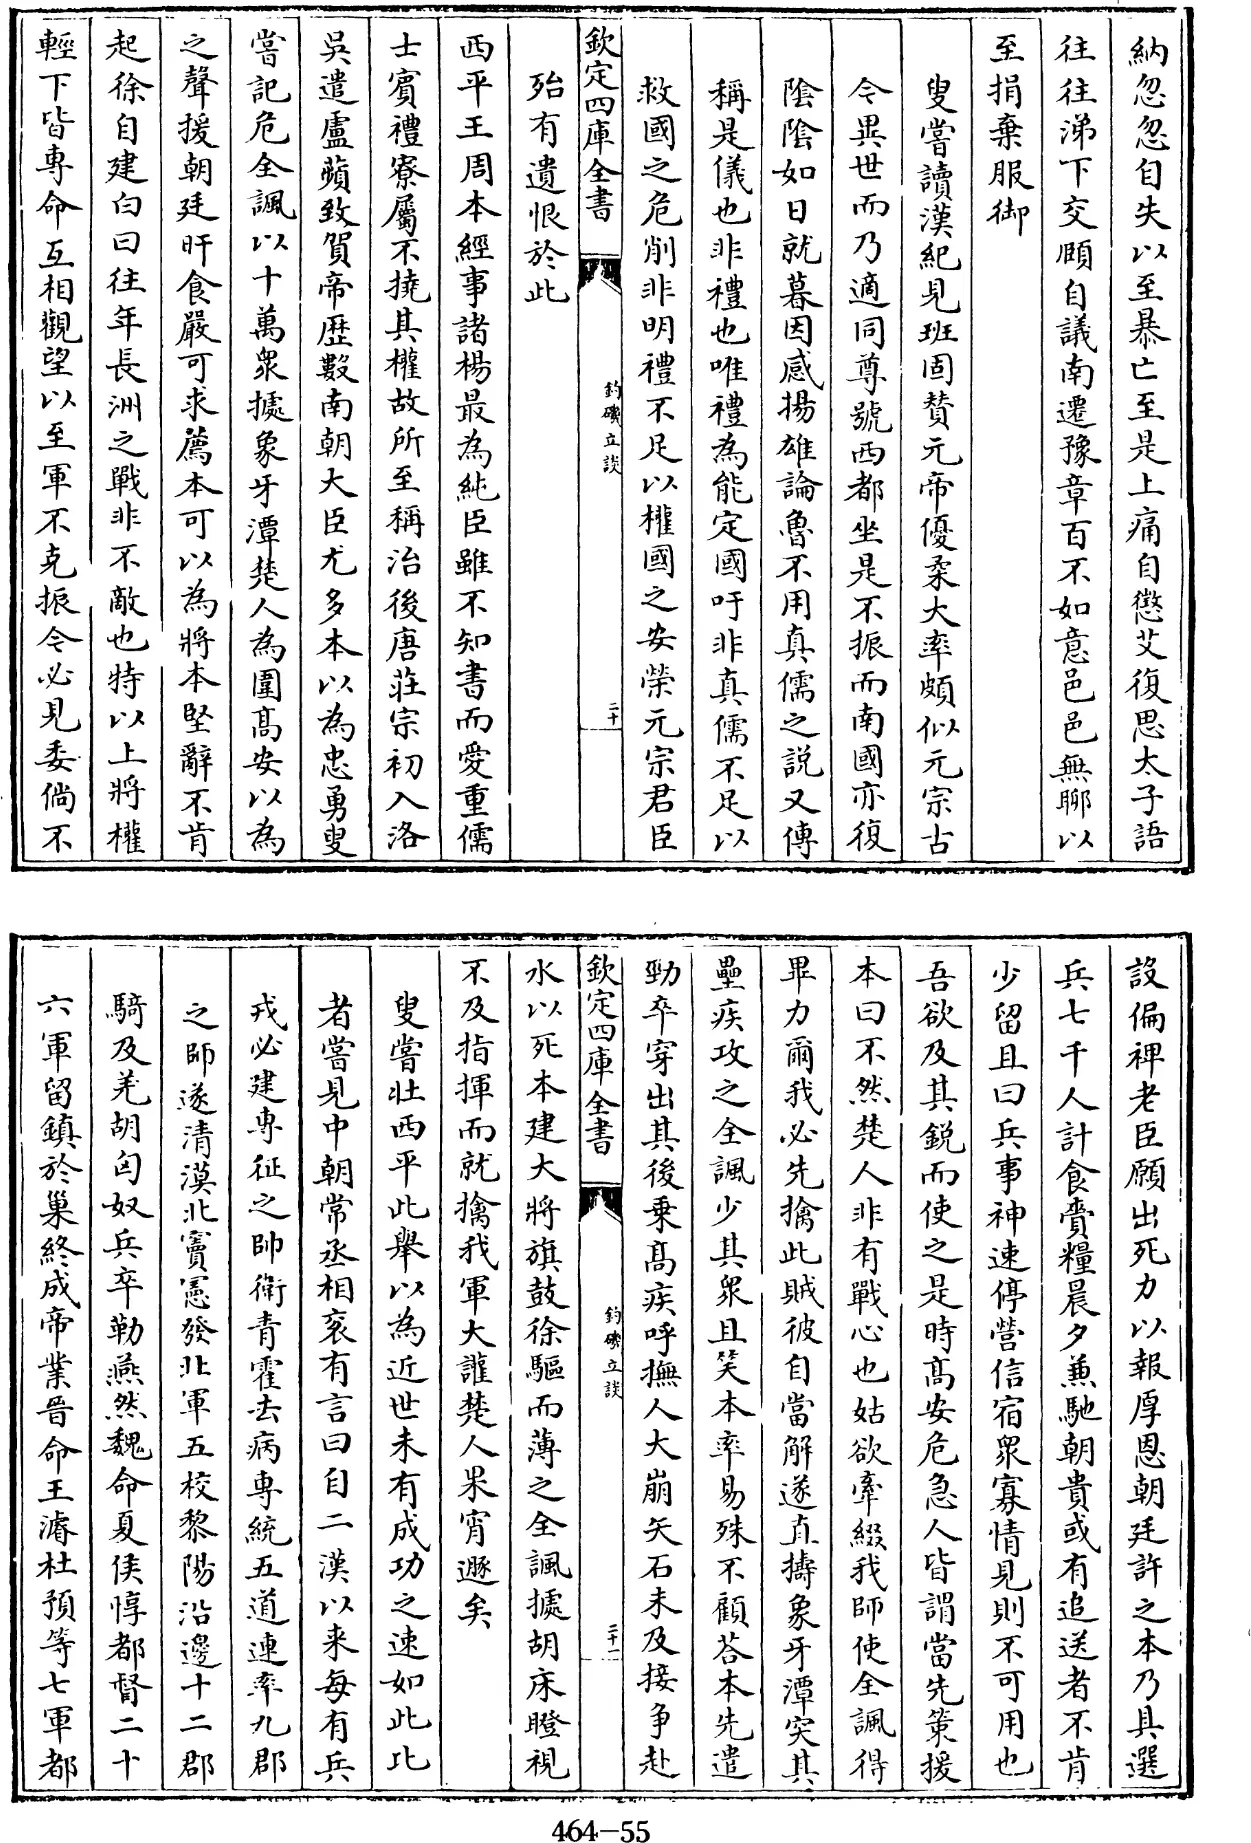 納忽忽自失以至暴亡至是上痛自懲艾復思太子語
往往涕下交頤自議南遷豫章百不如意邑邑無聊以
至捐棄服御
叟嘗讀漢紀見班固賛元帝優柔大率頗似元宗古
今異世而乃適同尊號西都坐是不振而南國亦復
陰陰如日就暮因感揚雄論魯不用真儒之説又傳
稱是儀也非禮也唯禮為能定國吁非真儒不足以
救國之危削非明禮不足以權國之安榮元宗君臣
殆有遺恨於此
欽定四庫全書
釣磯立談
二十
西平王周本經事諸楊最為純臣雖不知書而愛重儒
士賓禮寮屬不撓其權故所至稱治後唐莊宗初入洛
吳遣盧蘋致賀帝歴數南朝大臣尤多本以為忠勇叟
嘗記危全諷以十萬衆據象牙潭楚人為圍髙安以為
之聲援朝廷旰食嚴可求薦本可以為將本堅辭不肯
起徐自建白曰往年長洲之戰非不敵也特以上將權
輕下皆專命互相觀望以至軍不克振今必見委倘不
設偏裨老臣願出死力以報厚恩朝廷許之本乃具選
兵七千人計食賷糧晨夕兼馳朝貴或有追送者不肯
少留且曰兵事神速停營信宿衆寡情見則不可用也
吾欲及其鋭而使之是時髙安危急人皆謂當先策援
本曰不然楚人非有戰心也姑欲牽綴我師使全諷得
畢力爾我必先擒此賊彼自當解遂直擣象牙潭突其
壘疾攻之全諷少其衆且笑本率易殊不顧答本先遣
勁卒穿出其後乗髙疾呼撫人大崩矢石未及接争赴
欽定四庫全書
釣磯立談
二十一
水以死本建大將旗鼓徐驅而薄之全諷據胡床瞪視
不及指揮而就擒我軍大讙楚人果宵遯矣
叟嘗壯西平此舉以為近世未有成功之速如此比
者嘗見中朝常丞相衮有言曰自二漢以来每有兵
戎必建專征之帥衛青霍去病專統五道連率九郡
之師遂清漠北竇憲發北軍五校黎陽沿邊十二郡
騎及羌胡匈奴兵卒勒燕然魏命夏侯惇都督二十
六軍留鎮於巢終成帝業晉命王濬杜預等七軍都
464-55